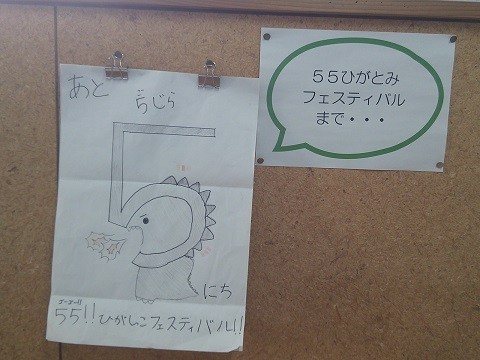 あと
5じら
5
にち
ゴーゴー!!
55!!ひがしこフェスティバル!!
55ひがとみ
フェスティバル
まで・・・